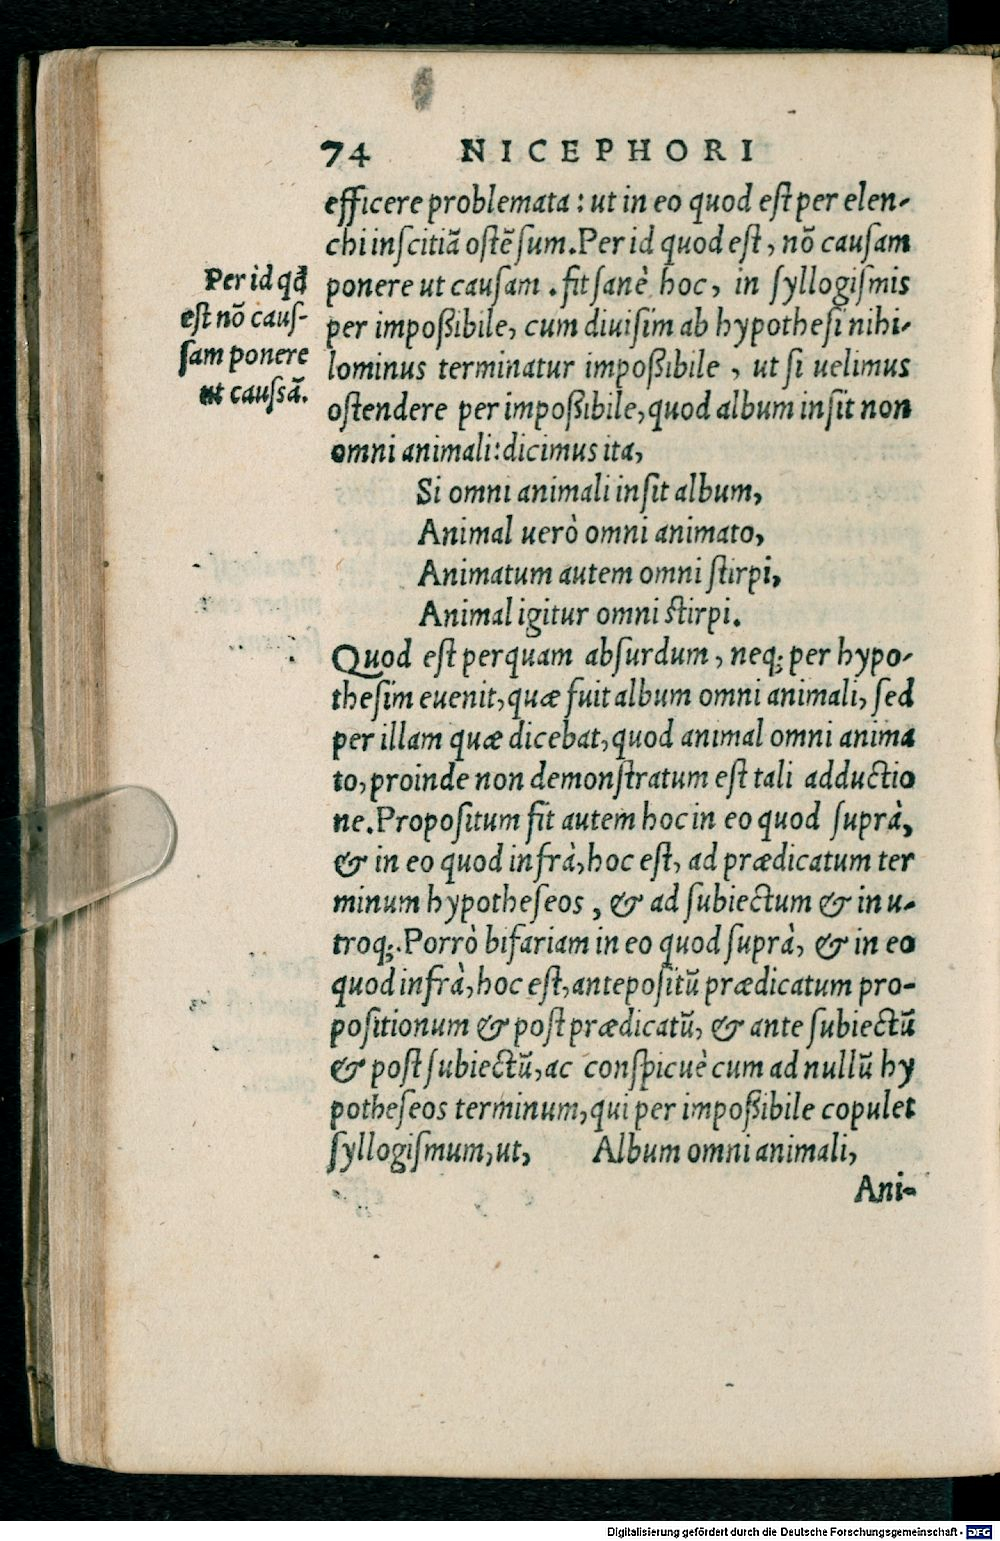 74 NICEPHORI
efficere problemata: ut in eo quod est per elen-
chi inscitiā ostēsum. Per id quod est, nō causam
ponere ut causam. fit sanè hoc, in syllogismis
per impoßibile, cum diuisim ab hypothesi nihi-
lominus terminatur impoßibile, ut si uelimus
ostendere per impoßibile, quod album insit non
omni animali: dicimus ita,
Per id qđ
est nō caus-
sam ponere
ut caussā.
Si omni animali insit album,
Animal uerò omni animato,
Animatum autem omni stirpi,
Animal igitur omni stirpi.
Quod est perquam absurdum, neq; per hypo-
thesim euenit, quæ fuit album omni animali, sed
per illam quæ dicebat, quod animal omni anima
to, proinde non demonstratum est tali adductio
ne. Propositum fit autem hoc in eo quod suprà,
& in eo quod infrà, hoc est, ad prædicatum ter
minum hypotheseos, & ad subiectum & in u-
troq;. Porrò bifariam in eo quod suprà, & in eo
quod infrà, hoc est, antepositū prædicatum pro-
positionum & post prædicatū, & ante subiectū
& post subiectū, ac conspicuè cum ad nullū hy
potheseos terminum, qui per impoßibile copulet
syllogismum, ut, Album omni animali,
Ani-
Digitalisierung gefördert durch die Deutsche Forschungsgemeinschaft - DFG